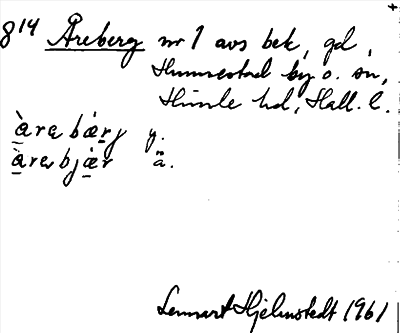 8¹⁴ Åreberg nr 1 avs bek, gd,
Hunnestad by o. sn,
Himle hd, Hall. l.
àrebǽrj y.
àrebjǽr ä.
Lennart Hjelmstedt 1961